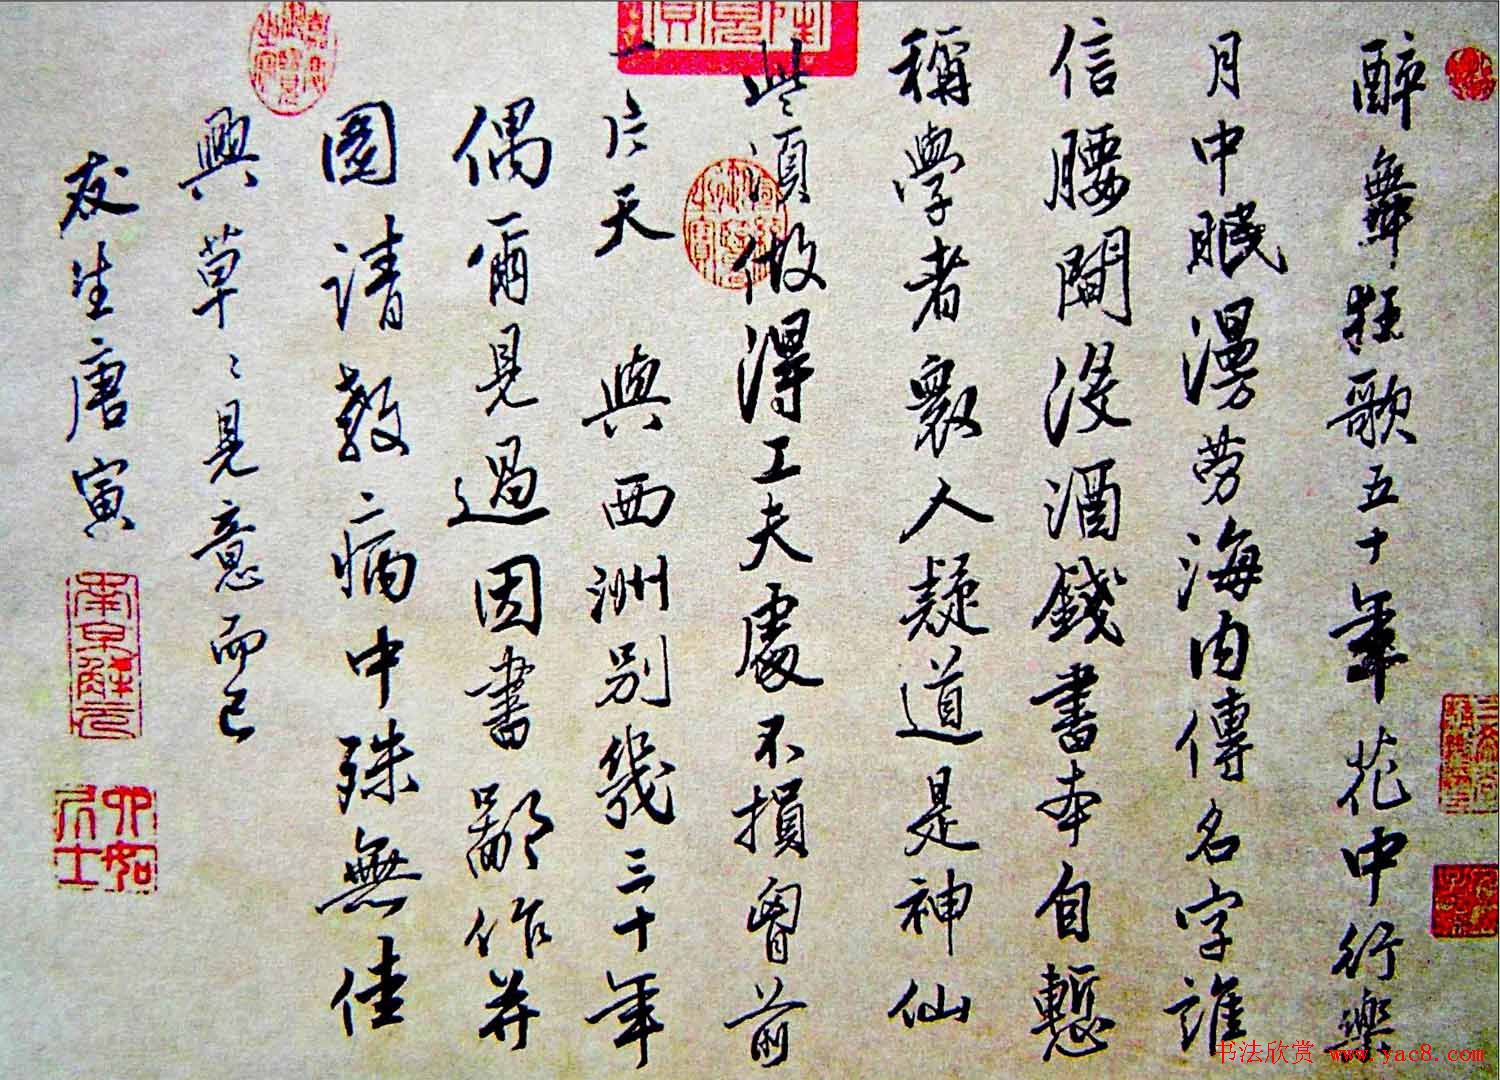 醉舞狂歌五十年花中行樂
月中眠漫劳海内傳名字誰
信腰間没酒錢書本自慙
稱學者衆人疑道是神仙
些須做得工夫處不損胷前
一片天 與西洲别幾三十年
偶爾見過因書鄙作并
圖請教病中殊無佳
興草〻見意而已
友生唐寅
南京解元
六如居士
书法欣赏 www.yac8.com